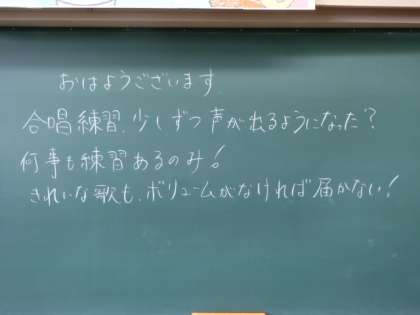 おはようございます.
合唱練習.少しずつ声が出るようになった?
何事も練習あるのみ!
きれいな歌も.ボリュームがなければ届かない!